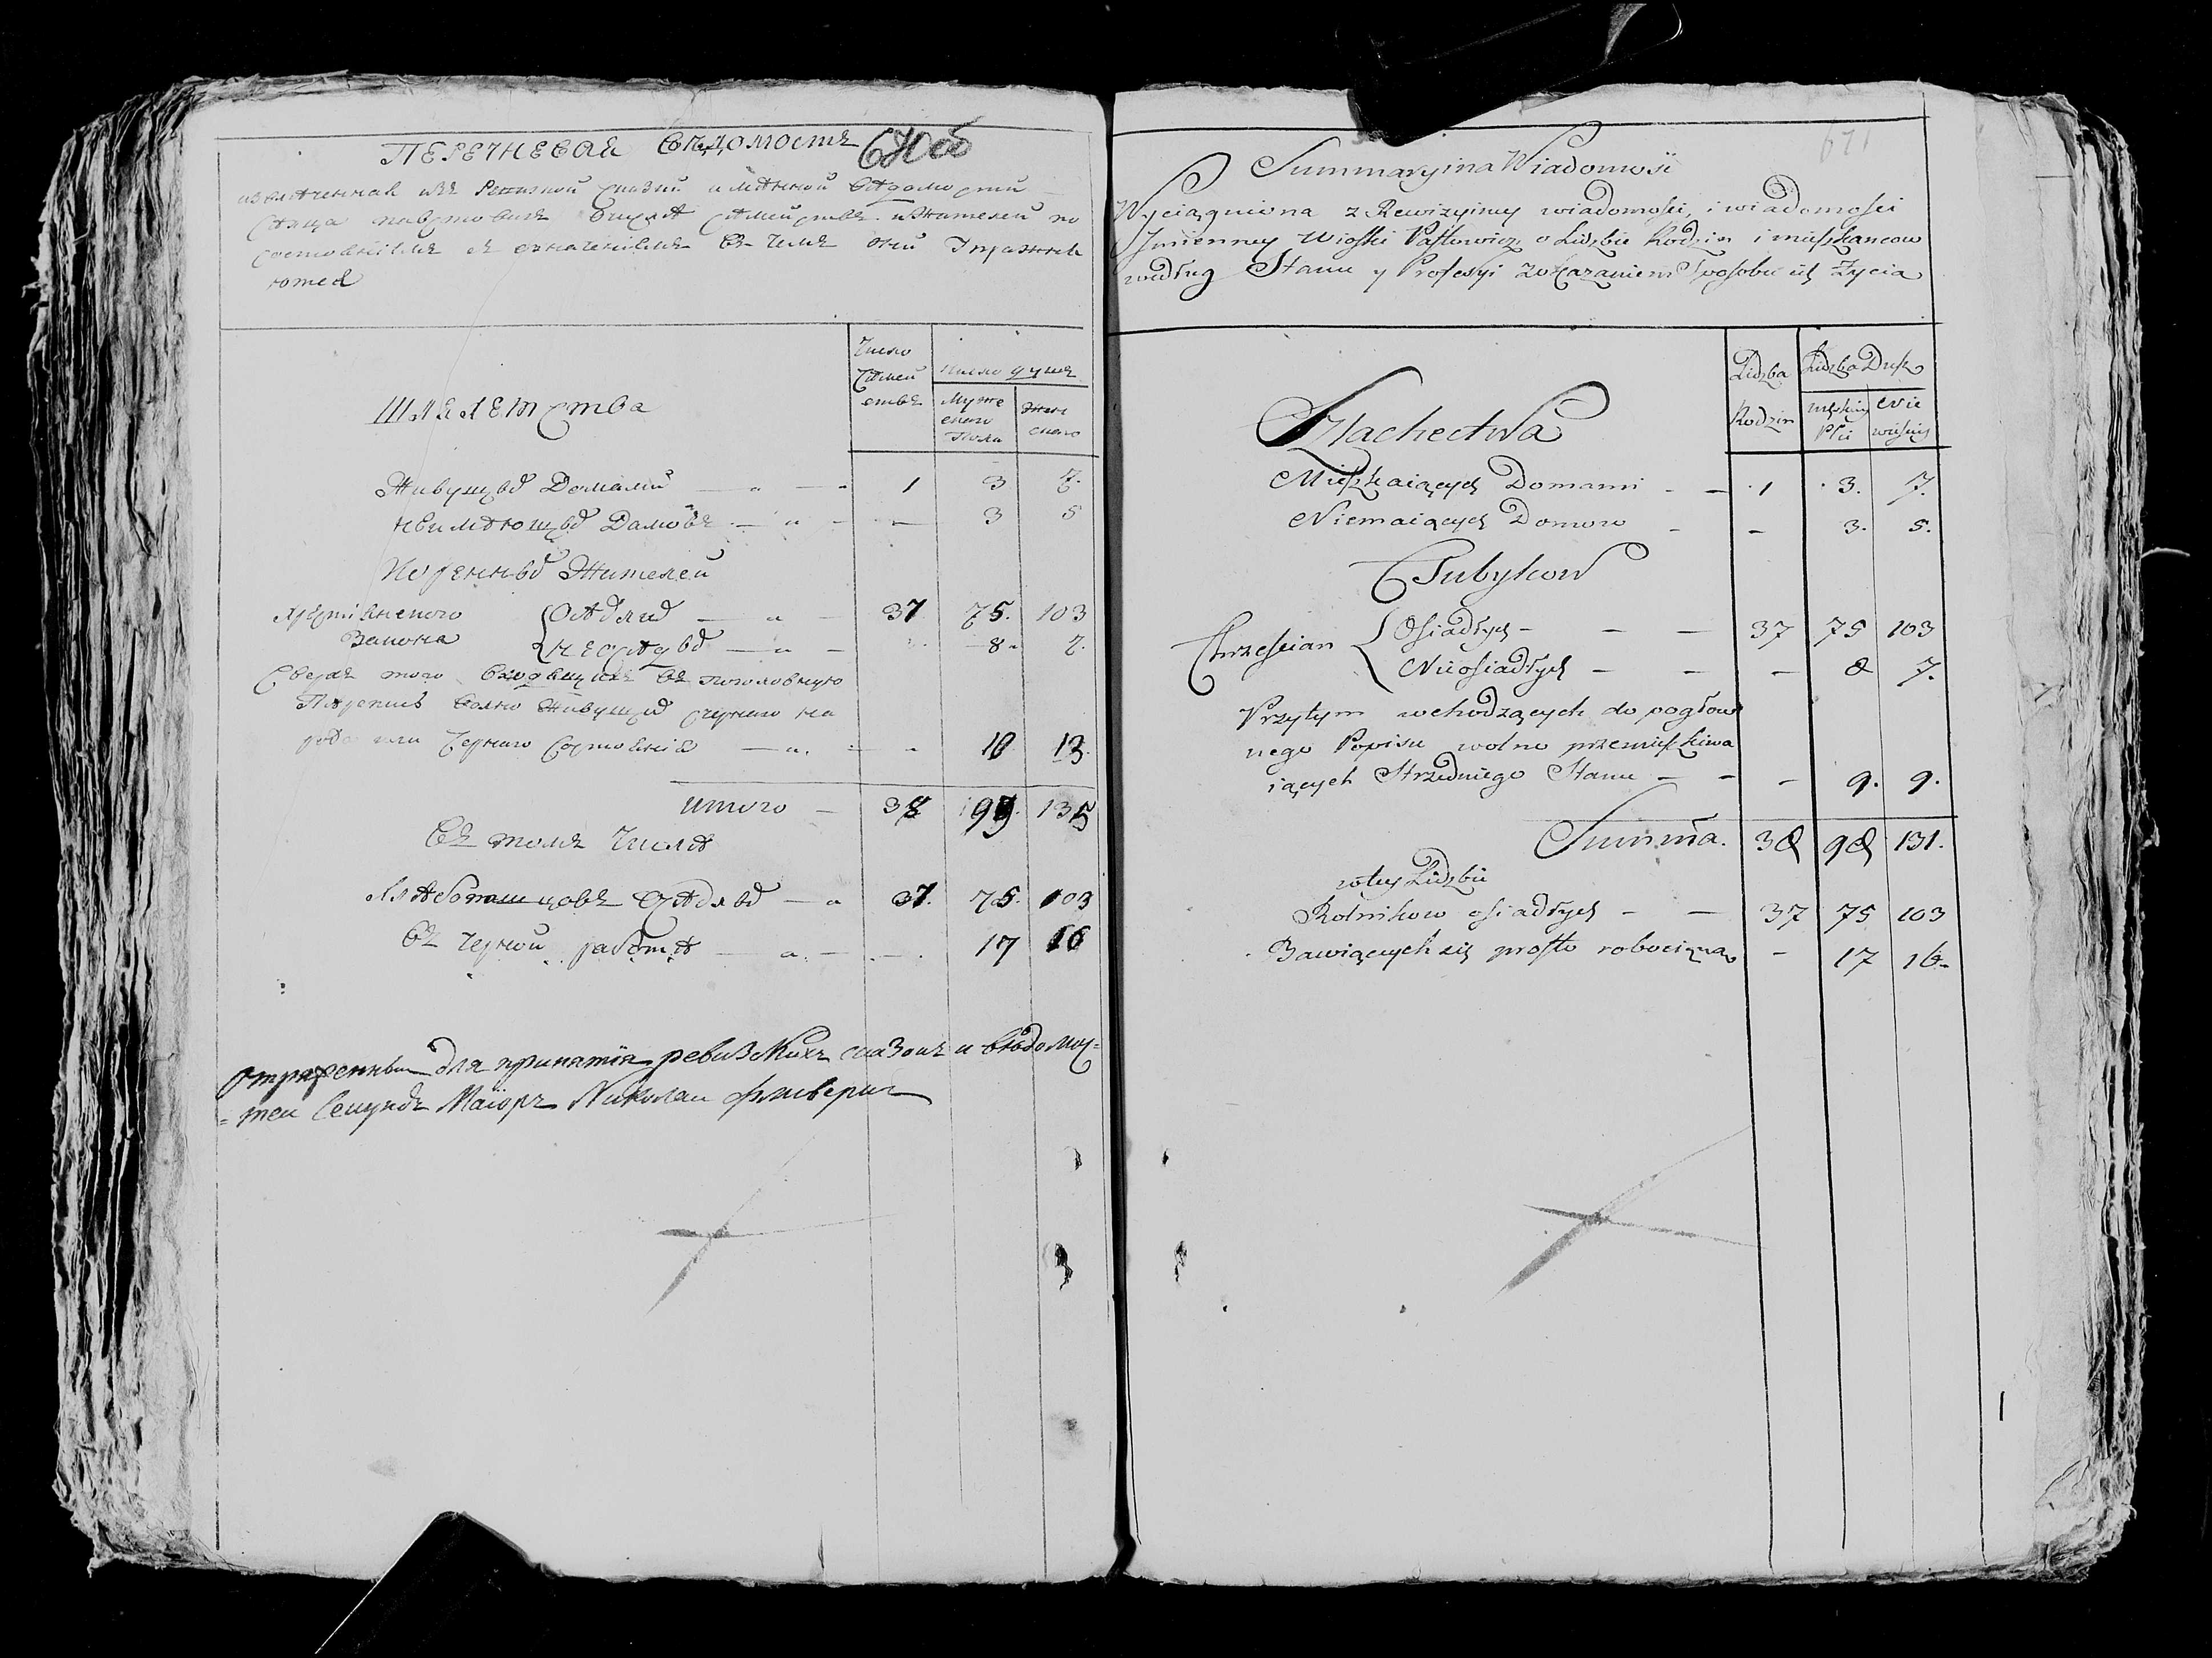 ПЕРЕЧНЕВАЯ ВѢДОМОСТЬ 670об
извлѣченная изъ Ревизкой сказки имѣнной вѣдомости
села о числѣ сѣмействъ и жителей по
состоянїямъ съ означенїемъ въ чемъ они упражня
ются
Число
Сѣмей
ствъ
число душъ
Муже
скаго
Пола
Жен
скаго
ШЛЯХЕТСТВА
Живущыхъ Домами — „ — 1 3 7.
Неимѣющыхъ Домовъ — „ — — 3 5
Коренныхъ Жителей
Хрестїанскаго
Закона
Осѣдлыхъ — „ — 37 75. 103
Неосѣдлыхъ — „ — 8 7.
Сверхъ того входящихъ въ поголовную
Перепись волно живущихъ
рода или чернаго состоянїя — „ — 10 13.
Итого — 38 99. 135
Въ томъ числѣ
Хлѣбопашцовъ осѣдлыхъ — „ 37. 75. 103
Въ черной работѣ — „ — 17 16
отряженный для принятїя ревизскихъ сказокъ и вѣдомос=
=теи Секундъ Маїоръ Николаи
671
Summaryina Wiadomość
Wyciągniona z Rewizyiney wiadomości, i wiadomości
Jmienney Wioski Pawłowicz o Lidzbie Rodzin i mieszkancow
według Stanu y Profesyi z okazaniem Sposobu ich Życia
Lidzba
Rodzin
Lidzba Dusz
męskiey
Płci
Nie
wieściey
Szlachectwa
Mieszkaiących Domami - - 1 3. 7.
Niemaiących Domow - - 3. 5.
Tubylcow
Chrześcian
Osiadłych - - - 37 75 103
Nieosiadłych - - - 8 7.
Przytym wchodzących do pogłow
nego Popisu wolno przemieszkiwa
iących Strzedniego Stanu - - - 9. 9.
Summa. 38 98 131.
w tey Lidzbie
Rolnikow osiadłych - - 37 75 103
Bawiących się prosto robocizną - 17 16